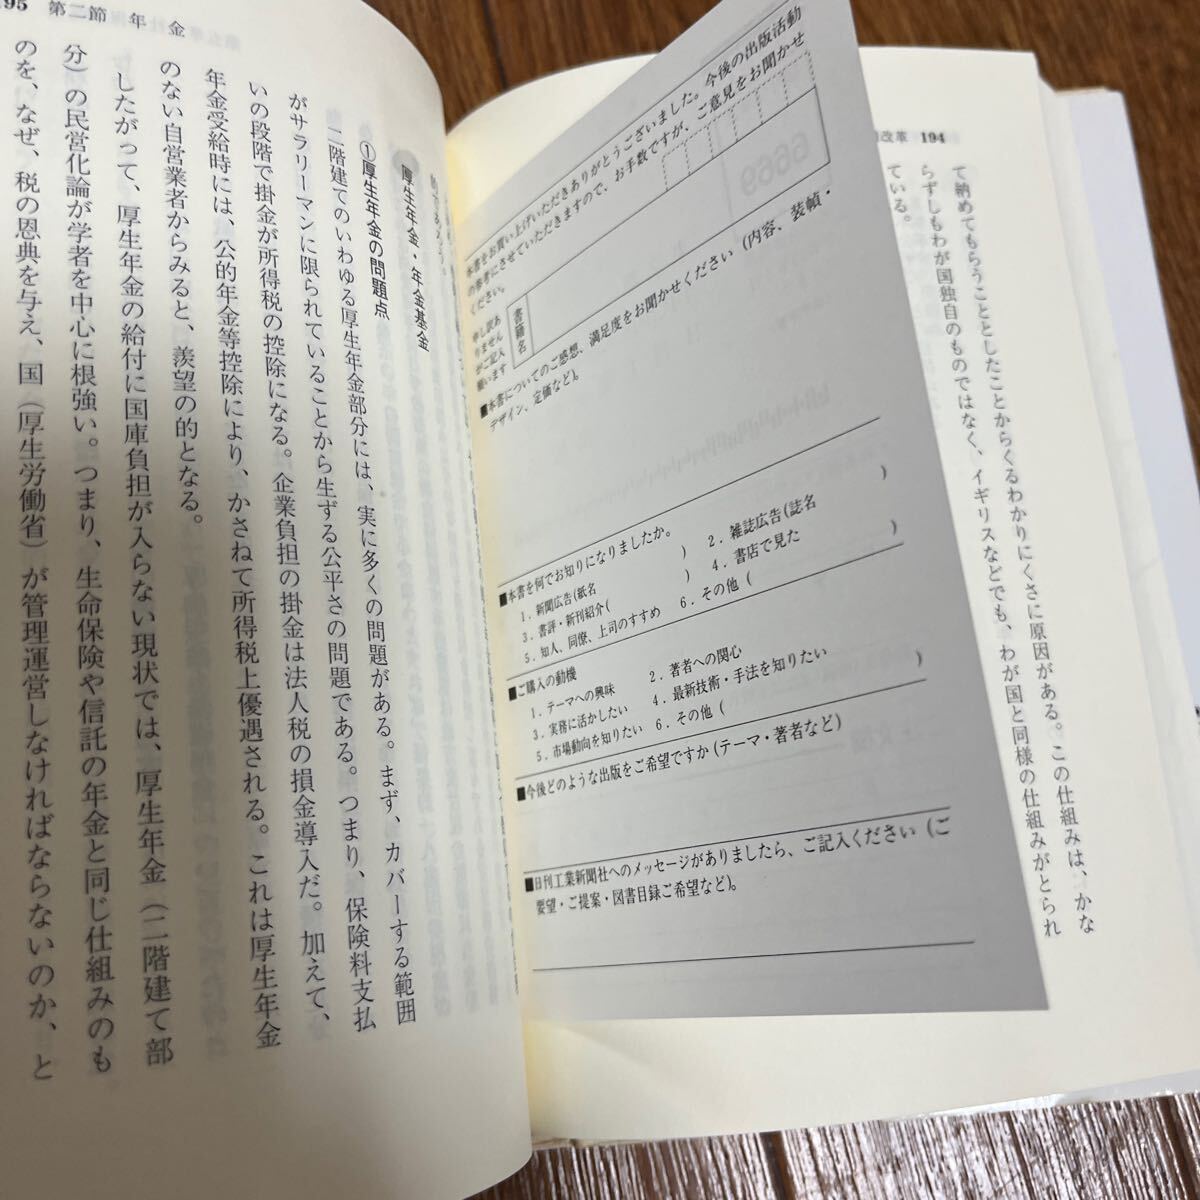 改革　194
て納めてもらうこととしたことからくるわかりにくさに原因がある。この仕組みは、かな
らずしもわが国独自のものではなく、イギリスなどでも、わが国と同様の仕組みがとられ
ている。
本書をお買い上げいただきありがとうございました。今後の出版活動
の参考にさせていただきますので、お手数ですが、ご意見をお聞かせ
ください。
申し訳あ
りません
がご記入
願います
書籍名
■本書についてのご感想、満足度をお聞かせください（内容、装幀・
デザイン、定価など）。
■本書を何でお知りになりましたか。
1．新聞広告(紙名　)　2．雑誌広告(誌名　)
3．書評・新刊紹介(　)　4．書店で見た
5．知人、同僚、上司のすすめ　6．その他（　）
■ご購入の動機
1．テーマへの興味　2．著者への関心
3．実務に活かしたい　4．最新技術・手法を知りたい
5．市場動向を知りたい　6．その他（　）
■今後どのような出版をご希望ですか（テーマ・著者など）
■日刊工業新聞社へのメッセージがありましたら、ご記入ください（ご
要望・ご提案・図書目録ご希望など）。
195　第二節　年　金
厚生年金・年金基金
①厚生年金の問題点
二階建てのいわゆる厚生年金部分には、実に多くの問題がある。まず、カバーする範囲
がサラリーマンに限られていることから生ずる公平さの問題である。つまり、保険料支払
いの段階で掛金が所得税の控除になる。企業負担の掛金は法人税の損金導入だ。加えて、
年金受給時には、公的年金等控除により、かさねて所得税上優遇される。これは厚生年金
のない自営業者からみると、羨望の的となる。
したがって、厚生年金の給付に国庫負担が入らない現状では、厚生年金（二階建て部
分）の民営化論が学者を中心に根強い。つまり、生命保険や信託の年金と同じ仕組みのも
のを、なぜ、税の恩典を与え、国（厚生労働省）が管理運営しなければならないのか、と